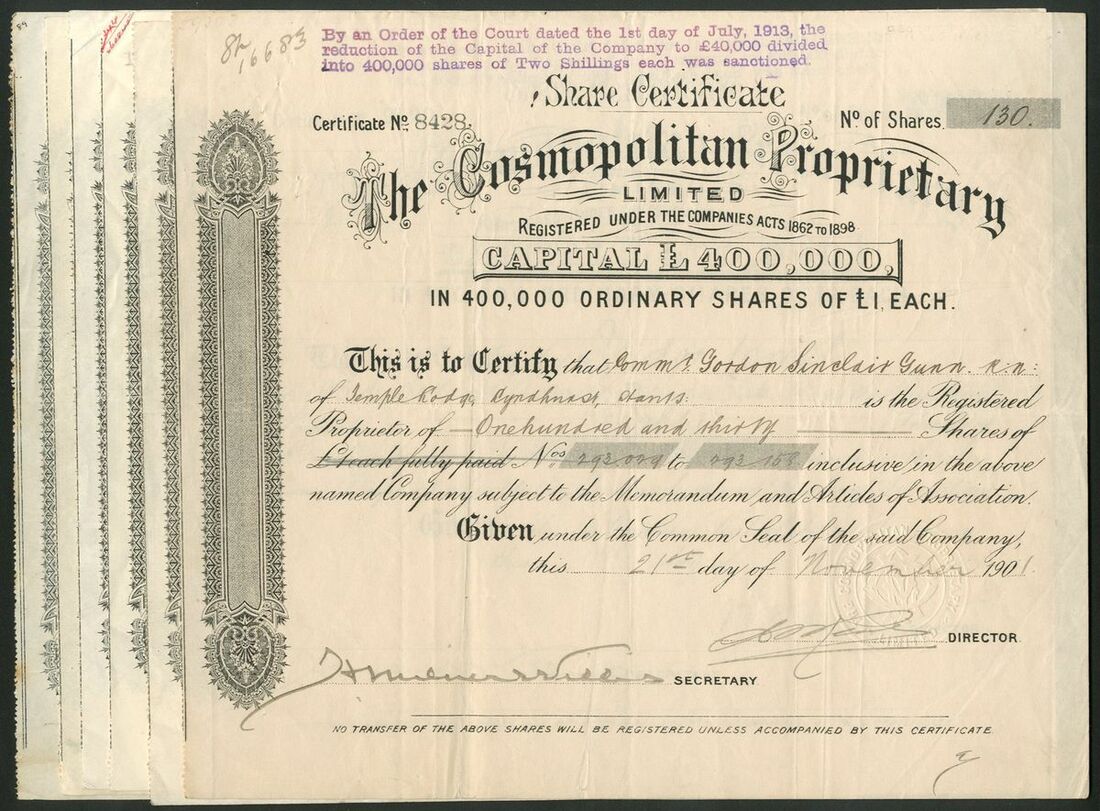 89
8h
16683
By an Order of the Court dated the 1st day of July, 1913, the
reduction of the Capital of the Company to £40,000 divided
into 400,000 shares of Two Shillings each was sanctioned.
Share Certificate
Certificate No. 8428.
No of Shares 130.
The Cosmopolitan Proprietary
LIMITED
REGISTERED UNDER THE COMPANIES ACTS 1862 TO 1898.
CAPITAL £400,000,
IN 400,000 ORDINARY SHARES OF £1, EACH.
This is to Certify that Commr. Gordon Sinclair Gunn. R.N:
of Temple Lodge, Lyndhurst, Hants: is the Registered
Proprietor of One hundred and thirty Shares of
£1 each fully paid Nos 293 029 to 293 158 inclusive in the above
named Company subject to the Memorandum and Articles of Association.
Given under the Common Seal of the said Company,
this 21st day of November 1901
DIRECTOR
SECRETARY
NO TRANSFER OF THE ABOVE SHARES WILL BE REGISTERED UNLESS ACCOMPANIED BY THIS CERTIFICATE.